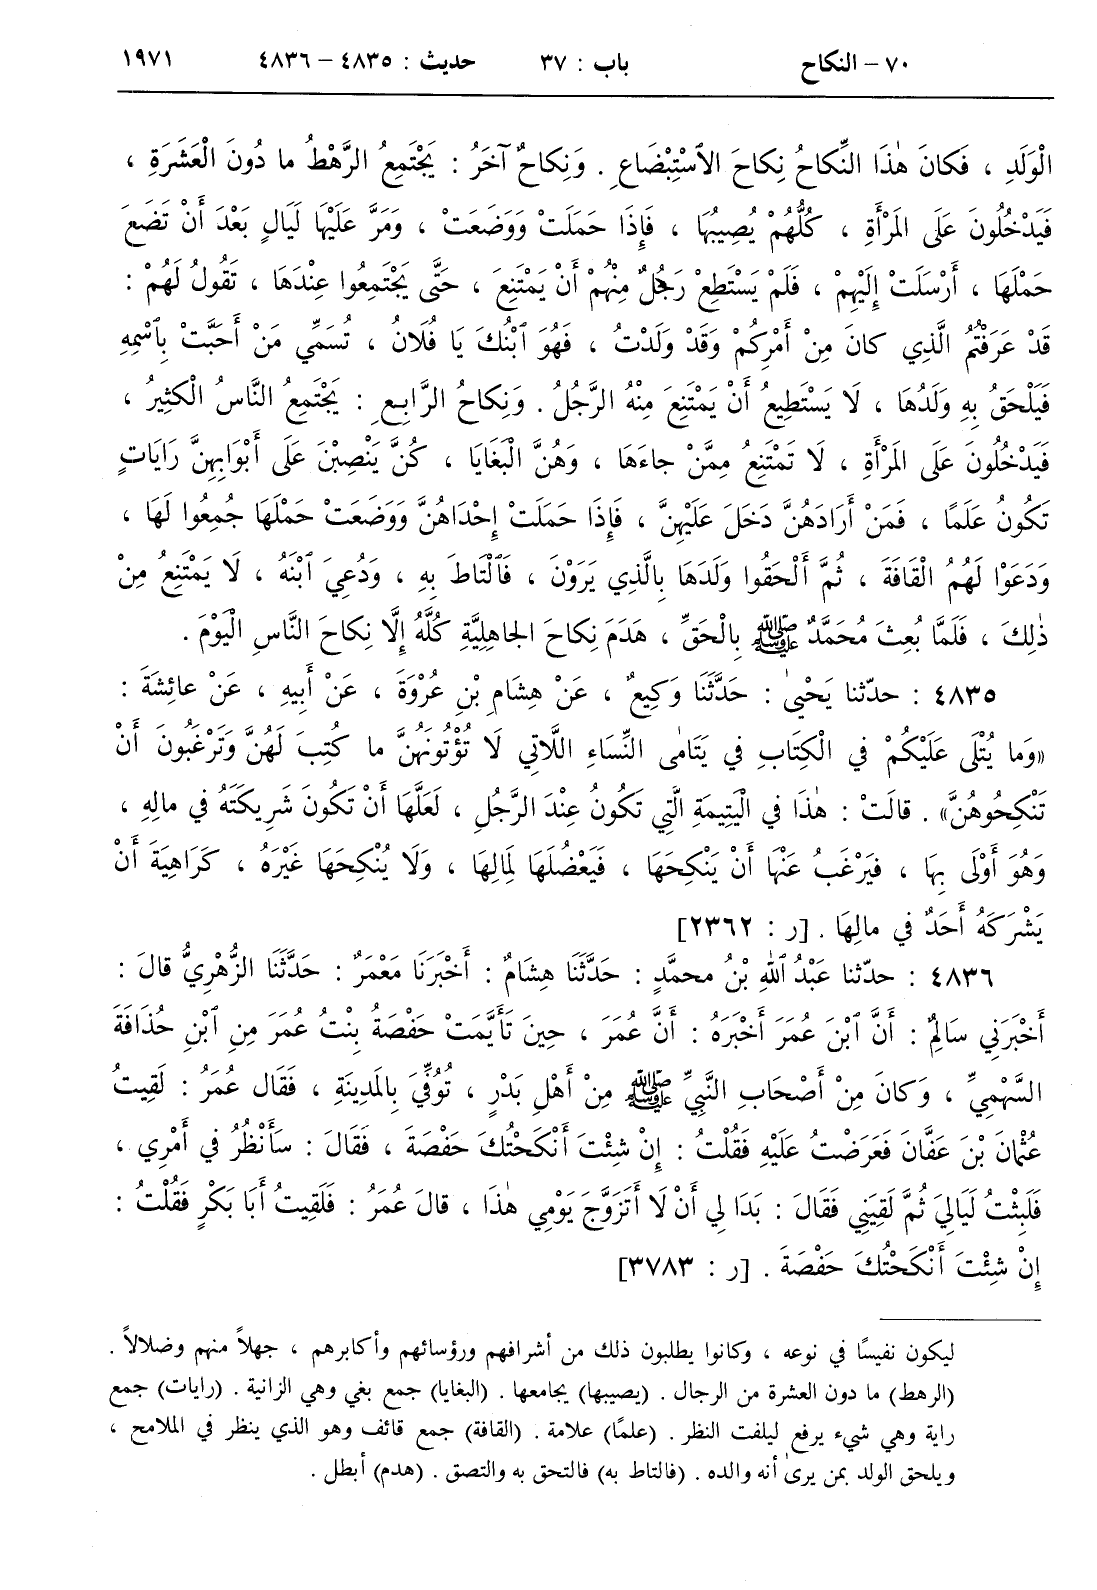 ٧٠ – النكاح باب : ٣٧ حديث : ٤٨٣٥ – ٤٨٣٦ ١٩٧١
الْوَلَدِ ، فَكانَ هٰذَا النِّكاحُ نِكاحَ الِاسْتِبْضَاعِ . وَنِكاحٌ آخَرُ : يَجْتَمِعُ الرَّهْطُ ما دُونَ الْعَشَرَةِ ،
فَيَدْخُلُونَ عَلَى المَرْأَةِ ، كُلُّهُمْ يُصِيبُهَا ، فَإِذَا حَمَلَتْ وَوَضَعَتْ ، وَمَرَّ عَلَيْهَا لَيَالٍ بَعْدَ أَنْ تَضَعَ
حَمْلَهَا ، أَرْسَلَتْ إِلَيْهِمْ ، فَلَمْ يَسْتَطِعْ رَجُلٌ مِنْهُمْ أَنْ يَمْتَنِعَ ، حَتَّى يَجْتَمِعُوا عِنْدَهَا ، تَقُولُ لَهُمْ :
قَدْ عَرَفْتُمُ الَّذِي كانَ مِنْ أَمْرِكُمْ وَقَدْ وَلَدْتُ ، فَهُوَ ٱبْنُكَ يَا فُلَانُ ، تُسَمِّي مَنْ أَحَبَّتْ بِٱسْمِهِ
فَيَلْحَقُ بِهِ وَلَدُهَا ، لَا يَسْتَطِيعُ أَنْ يَمْتَنِعَ مِنْهُ الرَّجُلُ . وَنِكاحُ الرَّابِعِ : يَجْتَمِعُ النَّاسُ الْكَثِيرُ ،
فَيَدْخُلُونَ عَلَى المَرْأَةِ ، لَا تَمْتَنِعُ مِمَّنْ جاءَهَا ، وَهُنَّ الْبَغَايَا ، كُنَّ يَنْصِبْنَ عَلَى أَبْوَابِهِنَّ رَايَاتٍ
تَكُونُ عَلَمًا ، فَمَنْ أَرَادَهُنَّ دَخَلَ عَلَيْهِنَّ ، فَإِذَا حَمَلَتْ إِحْدَاهُنَّ وَوَضَعَتْ حَمْلَهَا جُمِعُوا لَهَا ،
وَدَعَوْا لَهُمُ الْقَافَةَ ، ثُمَّ أَلْحَقُوا وَلَدَهَا بِالَّذِي يَرَوْنَ ، فَٱلْتَاطَ بِهِ ، وَدُعِيَ ٱبْنَهُ ، لَا يَمْتَنِعُ مِنْ
ذٰلِكَ ، فَلَمَّا بُعِثَ مُحَمَّدٌ ﷺ بِالْحَقِّ ، هَدَمَ نِكاحَ الجَاهِلِيَّةِ كُلَّهُ إِلَّا نِكاحَ النَّاسِ الْيَوْمَ .
٤٨٣٥ : حدّثنا يَحْيىٰ : حَدَّثَنَا وَكِيعٌ ، عَنْ هِشَامِ بْنِ عُرْوَةَ ، عَنْ أَبِيهِ ، عَنْ عائِشَةَ :
«وَما يُتْلَى عَلَيْكُمْ فِي الْكِتَابِ فِي يَتَامٰى النِّسَاءِ اللَّاتِي لَا تُؤْتُونَهُنَّ ما كُتِبَ لَهُنَّ وَتَرْغَبُونَ أَنْ
تَنْكِحُوهُنَّ» . قالَتْ : هٰذَا فِي الْيَتِيمَةِ الَّتِي تَكُونُ عِنْدَ الرَّجُلِ ، لَعَلَّهَا أَنْ تَكُونَ شَرِيكَتَهُ فِي مالِهِ ،
وَهُوَ أَوْلَى بِهَا ، فَيَرْغَبُ عَنْهَا أَنْ يَنْكِحَهَا ، فَيَعْضُلَهَا لِمَالِهَا ، وَلَا يُنْكِحَهَا غَيْرَهُ ، كَرَاهِيَةَ أَنْ
يَشْرَكَهُ أَحَدٌ فِي مالِهَا . [ر : ٢٣٦٢]
٤٨٣٦ : حدّثنا عَبْدُ ٱللهِ بْنُ محمدٍ : حَدَّثَنَا هِشَامٌ : أَخْبَرَنَا مَعْمَرٌ : حَدَّثَنَا الزُّهْرِيُّ قالَ :
أَخْبَرَنِي سَالِمٌ : أَنَّ ٱبْنَ عُمَرَ أَخْبَرَهُ : أَنَّ عُمَرَ ، حِينَ تَأَيَّمَتْ حَفْصَةُ بِنْتُ عُمَرَ مِنِ ٱبْنِ حُذَافَةَ
السَّهْمِيِّ ، وَكانَ مِنْ أَصْحَابِ النَّبِيِّ ﷺ مِنْ أَهْلِ بَدْرٍ ، تُوُفِّيَ بِالمَدِينَةِ ، فَقَال عُمَرُ : لَقِيتُ
عُثْمانَ بْنَ عَفَّانَ فَعَرَضْتُ عَلَيْهِ فَقُلْتُ : إِنْ شِئْتَ أَنْكَحْتُكَ حَفْصَةَ ، فَقَالَ : سَأَنْظُرُ فِي أَمْرِي ،
فَلَبِثْتُ لَيَالِيَ ثُمَّ لَقِيَنِي فَقَالَ : بَدَا لِي أَنْ لَا أَتَزَوَّجَ يَوْمِي هٰذَا ، قالَ عُمَرُ : فَلَقِيتُ أَبَا بَكْرٍ فَقُلْتُ :
إِنْ شِئْتَ أَنْكَحْتُكَ حَفْصَةَ . [ر : ٣٧٨٣]
ليكون نفيسًا في نوعه ، وكانوا يطلبون ذلك من أشرافهم ورؤسائهم وأكابرهم ، جهلاً منهم وضلالاً .
(الرهط) ما دون العشرة من الرجال . (يصيبها) يجامعها . (البغايا) جمع بغي وهي الزانية . (رايات) جمع
راية وهي شيء يرفع ليلفت النظر . (علمًا) علامة . (القافة) جمع قائف وهو الذي ينظر في الملامح ،
ويلحق الولد بمن يرىٰ أنه والده . (فالتاط به) فالتحق به والتصق . (هدم) أبطل .